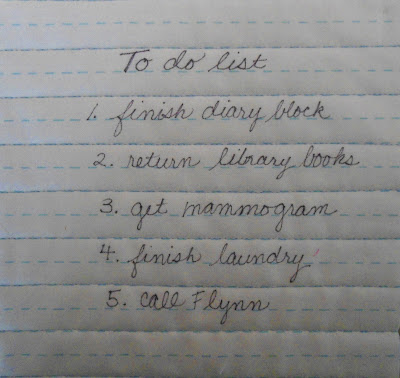 To do list
1. finish diary block
2. return library books
3. get mammogram
4. finish laundry
5. call Flynn